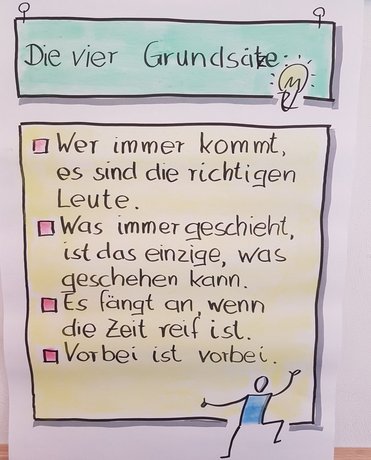 Die vier Grundsätze
Wer immer kommt,
es sind die richtigen
Leute.
Was immer geschieht,
ist das einzige, was
geschehen kann.
Es fängt an, wenn
die Zeit reif ist.
Vorbei ist vorbei.